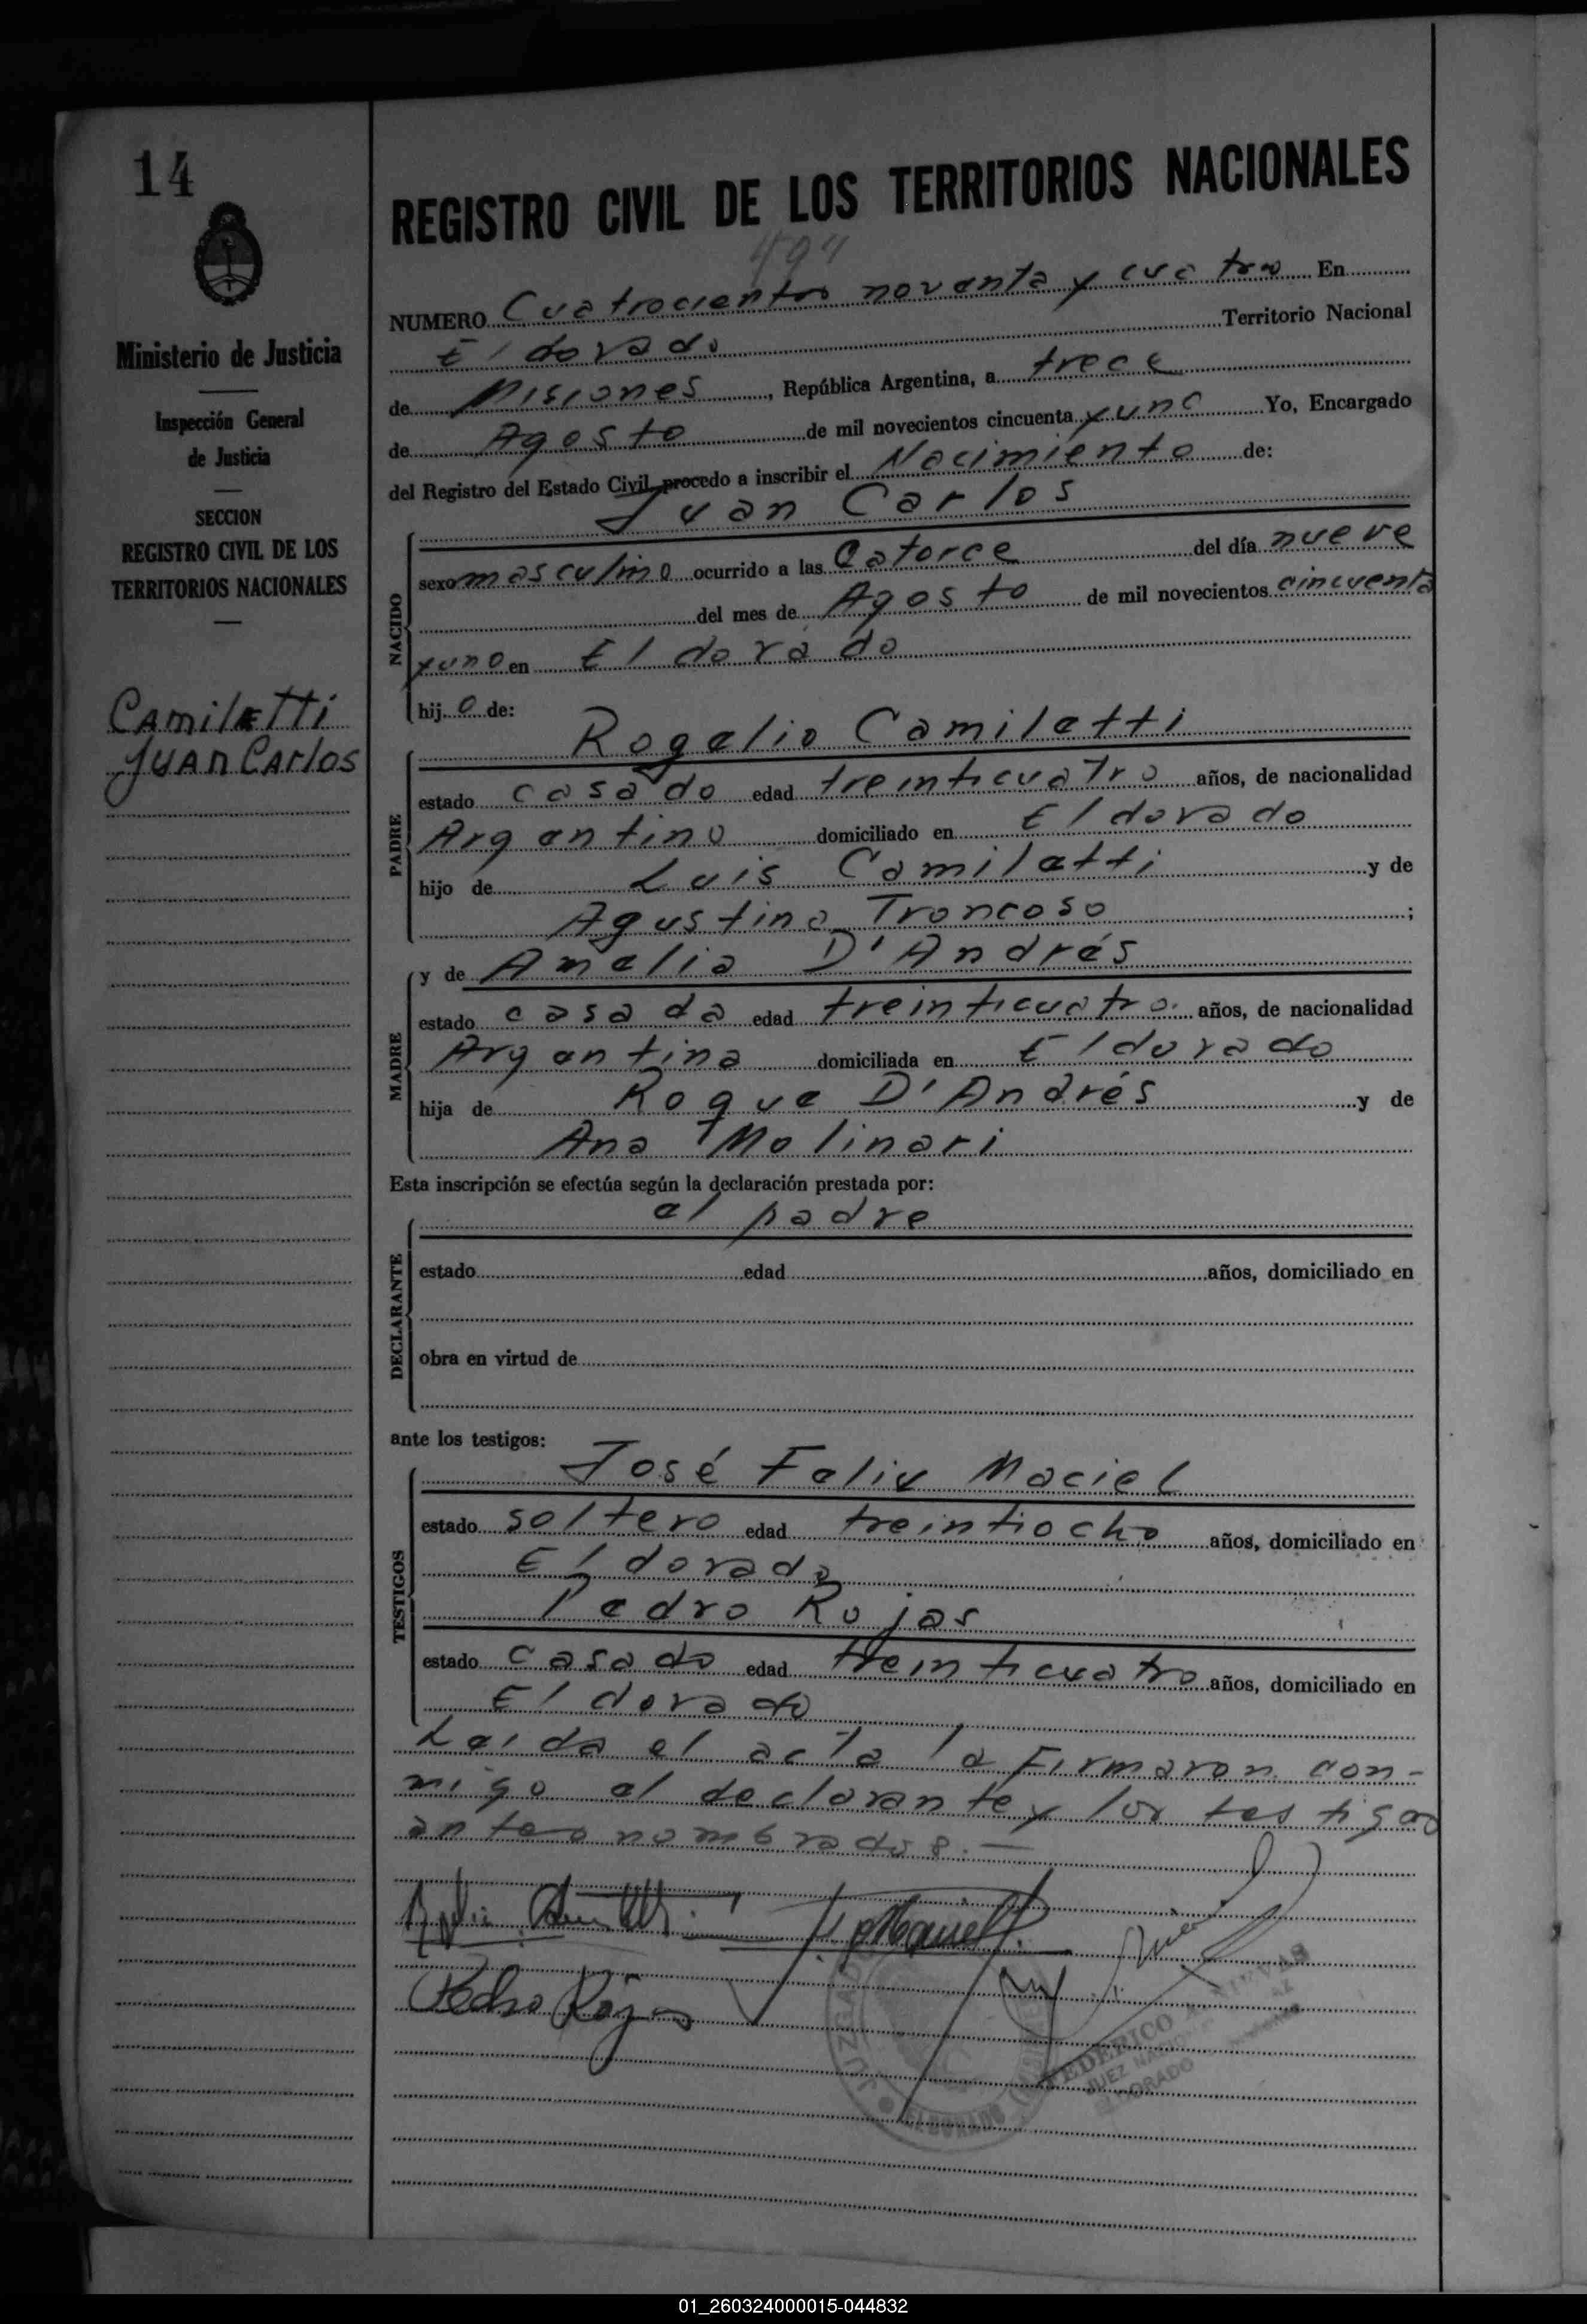 14
Ministerio de Justicia
Inspección General
de Justicia
SECCION
REGISTRO CIVIL DE LOS
TERRITORIOS NACIONALES
Camiletti
Juan Carlos
REGISTRO CIVIL DE LOS TERRITORIOS NACIONALES
494
NUMERO Cuatrocientos noventa y cuatro En
Eldorado Territorio Nacional
de Misiones, República Argentina, a trece
de Agosto de mil novecientos cincuenta y uno Yo, Encargado
del Registro del Estado Civil, procedo a inscribir el Nacimiento de:
Juan Carlos
NACIDO
sexo masculino ocurrido a las Catorce del día nueve
del mes de Agosto de mil novecientos cincuenta
y uno en Eldorado
hijo de:
Rogelio Camiletti
PADRE
estado casado edad treinticuatro años, de nacionalidad
Argentino domiciliado en Eldorado
hijo de Luis Camiletti y de
Agustina Troncoso;
y de Amelia D'Andrés
MADRE
estado casada edad treinticuatro años, de nacionalidad
Argentina domiciliada en Eldorado
hija de Roque D'Andrés y de
Ana Molinari
Esta inscripción se efectúa según la declaración prestada por:
el padre
DECLARANTE
estado edad años, domiciliado en
obra en virtud de
ante los testigos:
José Felix Maciel
TESTIGOS
estado soltero edad treintiocho años, domiciliado en
Eldorado
Pedro Rojas
estado casado edad treinticuatro años, domiciliado en
Eldorado
Leída el acta la Firmaron con-
migo el declarante y los testigos
antes nombrados.-
Pedro Rojas
JUZGADO
ELDORADO
FEDERICO A.
JUEZ
ELDORADO
01_260324000015-044832